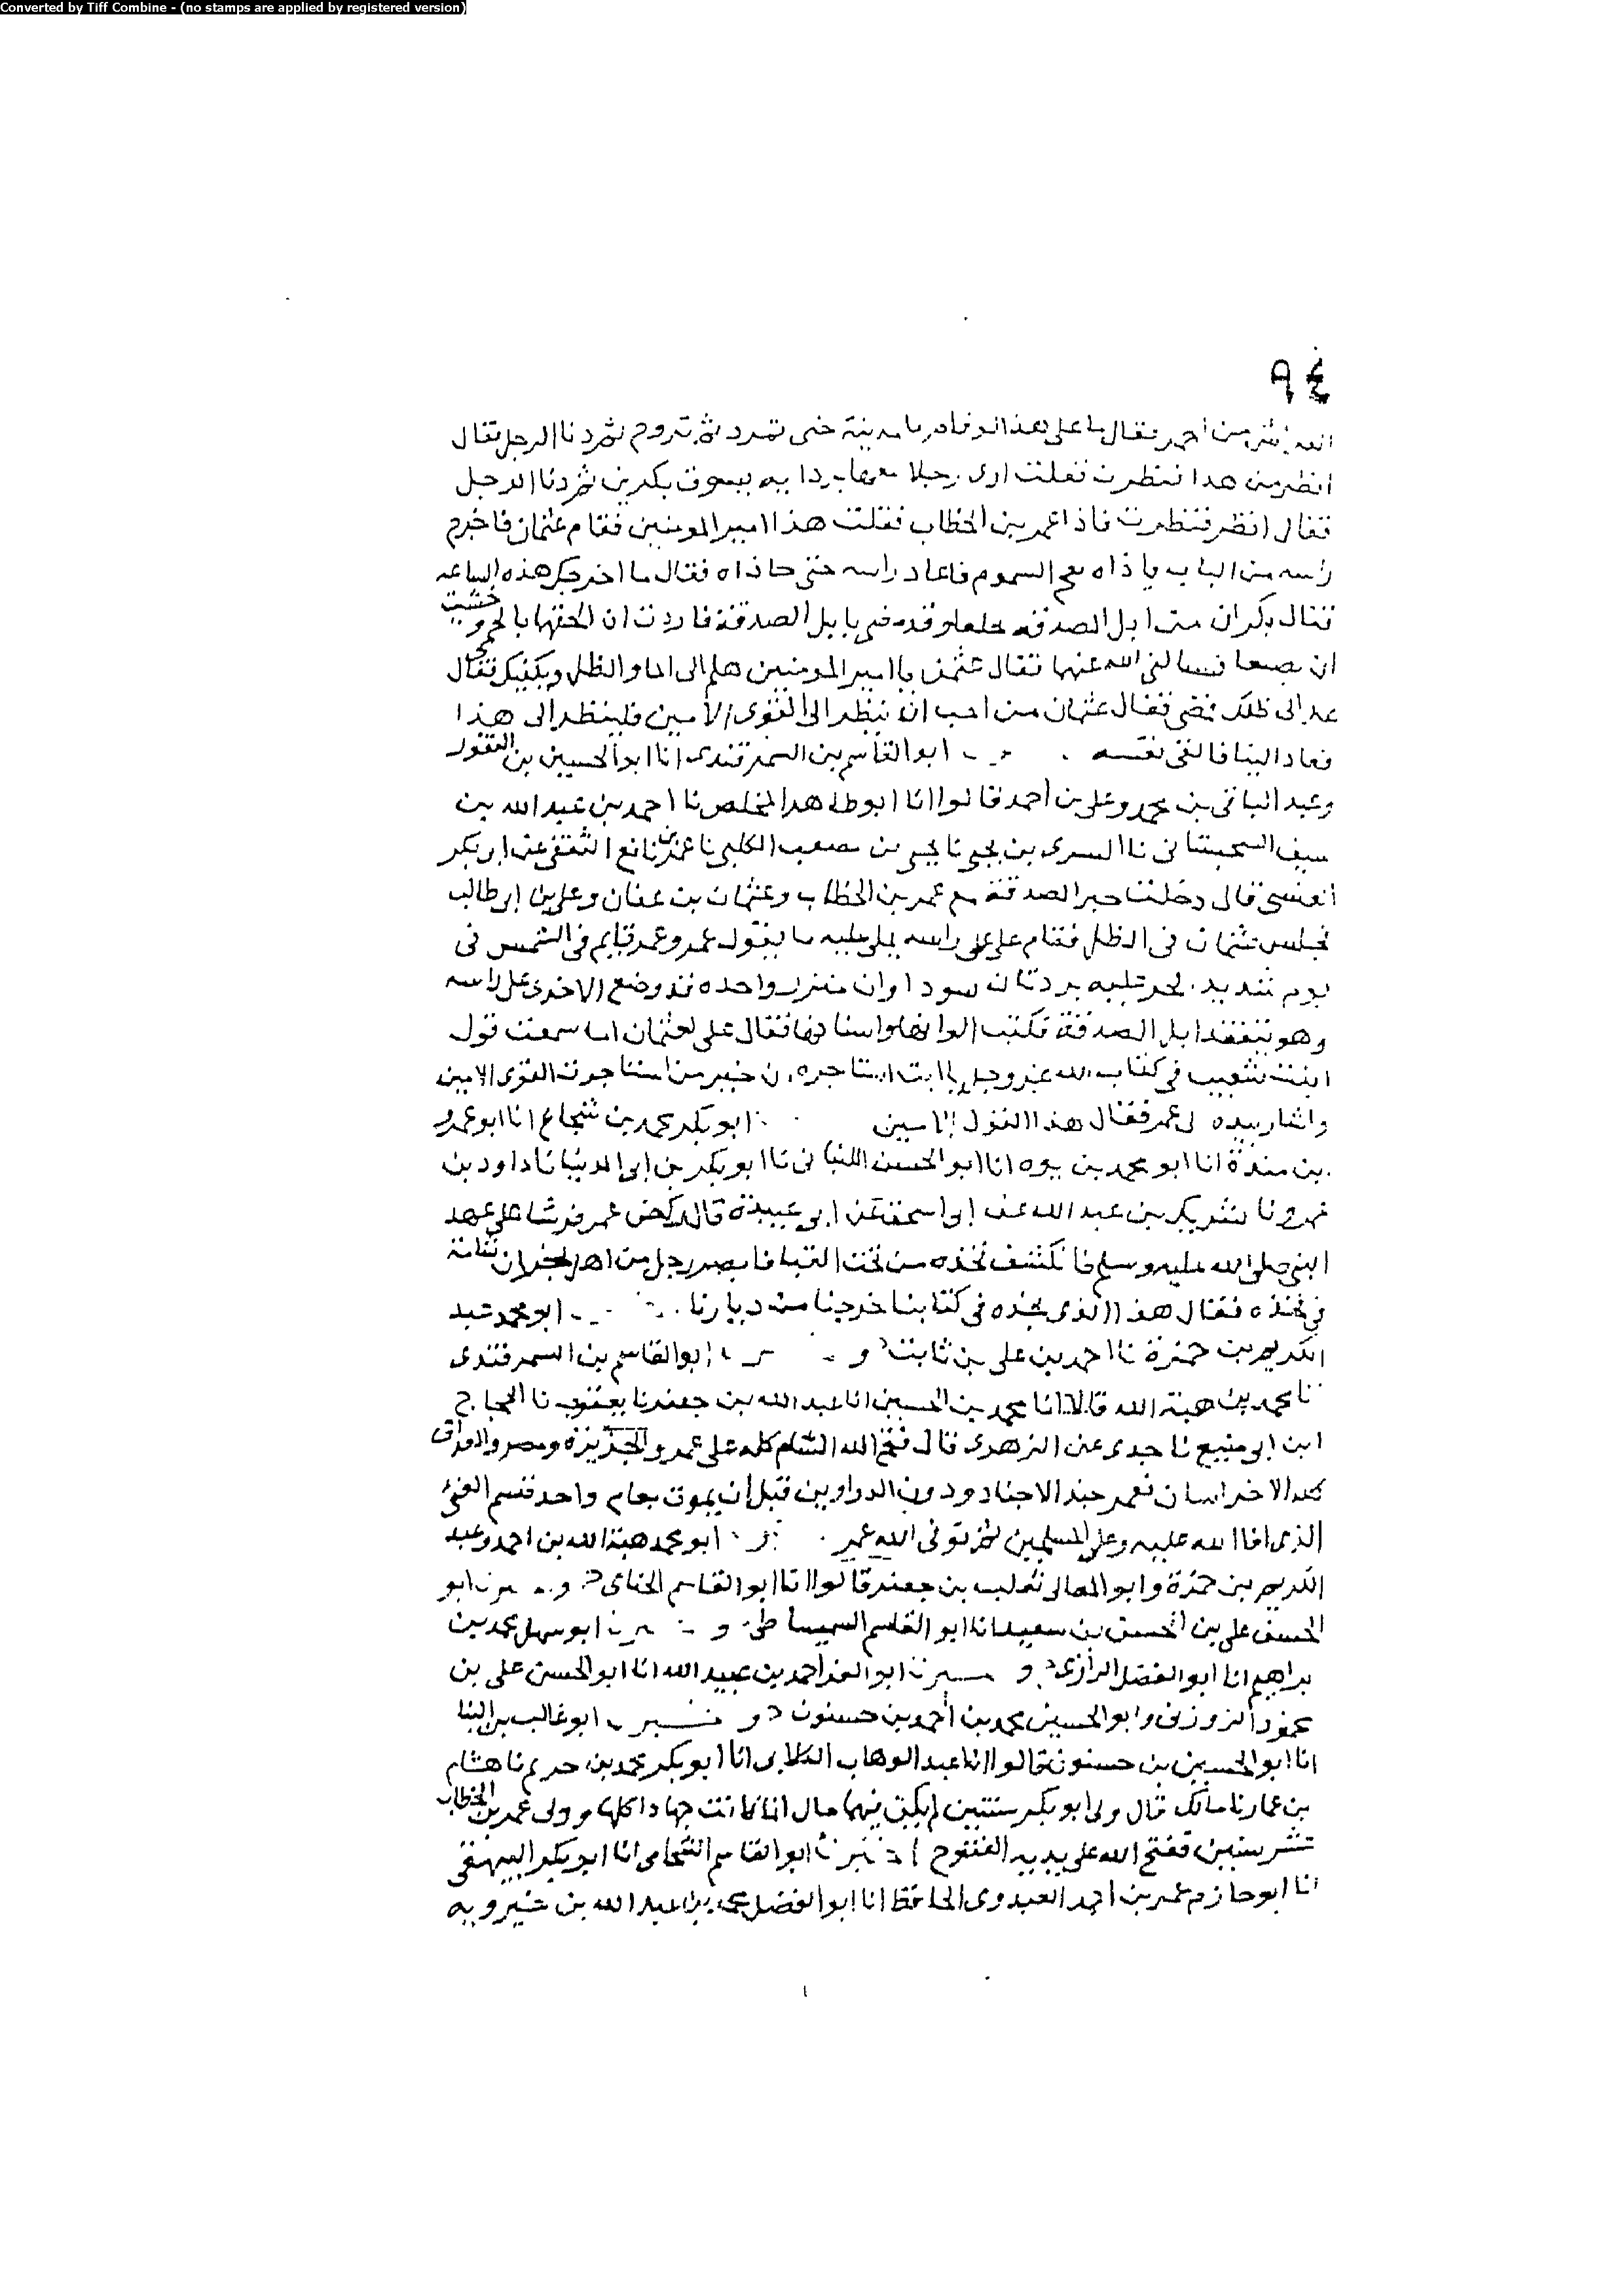 Converted by Tiff Combine - (no stamps are applied by registered version)
٩٤
من الحر فقال ما على هذا لو اقام بالمدينة حتى تبرد ثم تروح ثم دنا الرجل فقال
انظر من هذا فنظرت فقلت ارى رجلا معمما بردائه يسوق بكرين ثم دنا الرجل
فقال انظر فنظرت فاذا عمر بن الخطاب فقلت هذا امير المومنين فقام عثمان فاخرج
راسه من الباب فاذاه نفح السموم فاعاد راسه حتى حاذاه فقال ما اخرجك هذه الساعه
فقال بكران من ابل الصدقه تخلفا وقد مضى بابل الصدقة فاردت ان الحقهما بالحمى وخشيت
ان يضيعا فيسالنى الله عنهما فقال عثمن يا امير المومنين هلم الى الما والظل ونكفيك فقال
عد الى ظلك فمضى فقال عثمان من احب ان ينظر الى القوى الامين فلينظر الى هذا
فعاد الينا فالقى نفسه ابو القاسم بن السمرقندى انا ابو الحسين بن النقور
وعبد الباقى بن محمد وعلى بن احمد قالوا انا ابو طاهر المخلص نا احمد بن عبد الله بن
سيف السجستانى نا السرى بن يحيى نا بن مصعب الكلبى نا عمر بن نافع الثقفى عن ابى بكر
العبسى قال دخلت حير الصدقة مع عمر بن الخطاب وعثمان بن عفان وعلى بن ابى طالب
فجلس عثمان فى الظل فقام على على راسه يملى عليه ما يقول عمر وعمر قايم فى الشمس فى
يوم شديد الحر عليه بردتان سوداوان متزر بواحده قد وضع الاخرى على راسه
وهو يتفقد ابل الصدقة فكتب الوانها واسنانها فقال على لعثمان اما سمعت قول
ابنت شعيب فى كتاب الله عز وجل يا ابت استاجره ان خير من استاجرت القوى الامين
واشار بيده الى عمر فقال هذا القوى الامين ابو بكر محمد بن شجاع انا ابو عمرو
بن مندة انا ابو محمد بن يوه انا ابو الحسن اللنبانى نا ابو بكر بن ابى الدنيا نا داود بن
عمرو نا شريك بن عبد الله عن ابى اسحق عن ابى عبيدة قال ركض عمر فرسا على عهد
النبى صلى الله عليه وسلم فانكشف فخذه من تحت القبا فابصر رجل من اهل نجران شامة
فى فخذه فقال هذا الذى نجده فى كتابنا يخرجنا من ديارنا ابو محمد عبد
الكريم بن حمزة نا احمد بن على بن ثابت ح و ابو القاسم بن السمرقندى
نا محمد بن هبة الله قالا انا محمد بن الحسين انا عبد الله بن جعفر نا يعقوب نا الحجاج
ابن ابى منيع نا جدى عن الزهرى قال فتح الله الشام كله على عمر والجزيزة ومصر والعراق
كله الا خراسان فعمر جند الاجناد ودون الدواوين قبل ان يموت بعام واحد قسم الفئ
الذى افا الله عليه وعلى المسلمين ثم توفى الله عمر ابو محمد هبة الله بن احمد وعبد
الكريم بن حمزة وابو المعالى ثعلب بن جعفر قالوا انا ابو القاسم الحناى ح و ابو
الحسن على بن الحسن بن سعيد انا ابو القاسم السميساطى و ابو سهل محمد بن
براهيم انا ابو الفضل الرازى ح و ابو العز احمد بن عبيد الله انا ابو الحسن على بن
محمود الزوزنى وابو الحسين محمد بن احمد بن حسنون ح و ابو غالب بن البنا
انا ابو الحسين بن حسنون قالوا انا عبد الوهاب الكلابى انا ابو بكر محمد بن خريم نا هشام
بن عمار نا مالك قال ولى ابو بكر سنتين لم يكن فيهما مال انما كانت جهادا كلها وولى عمر بن الخطاب
عشر سنين ففتح الله على يديه الفتوح ابو القاسم الشحامى انا ابو بكر البيهقى
انا ابو حازم عمر بن احمد العبدوى الحافظ انا ابو الفضل محمد بن عبد الله بن خميرويه